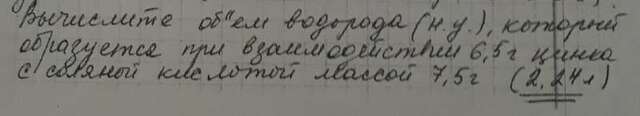 Вычислите об"ем водорода (н.у.), который
образуется при взаимодействии 6,5г цинка
с соляной кислотой массой 7,5г (2,24л)